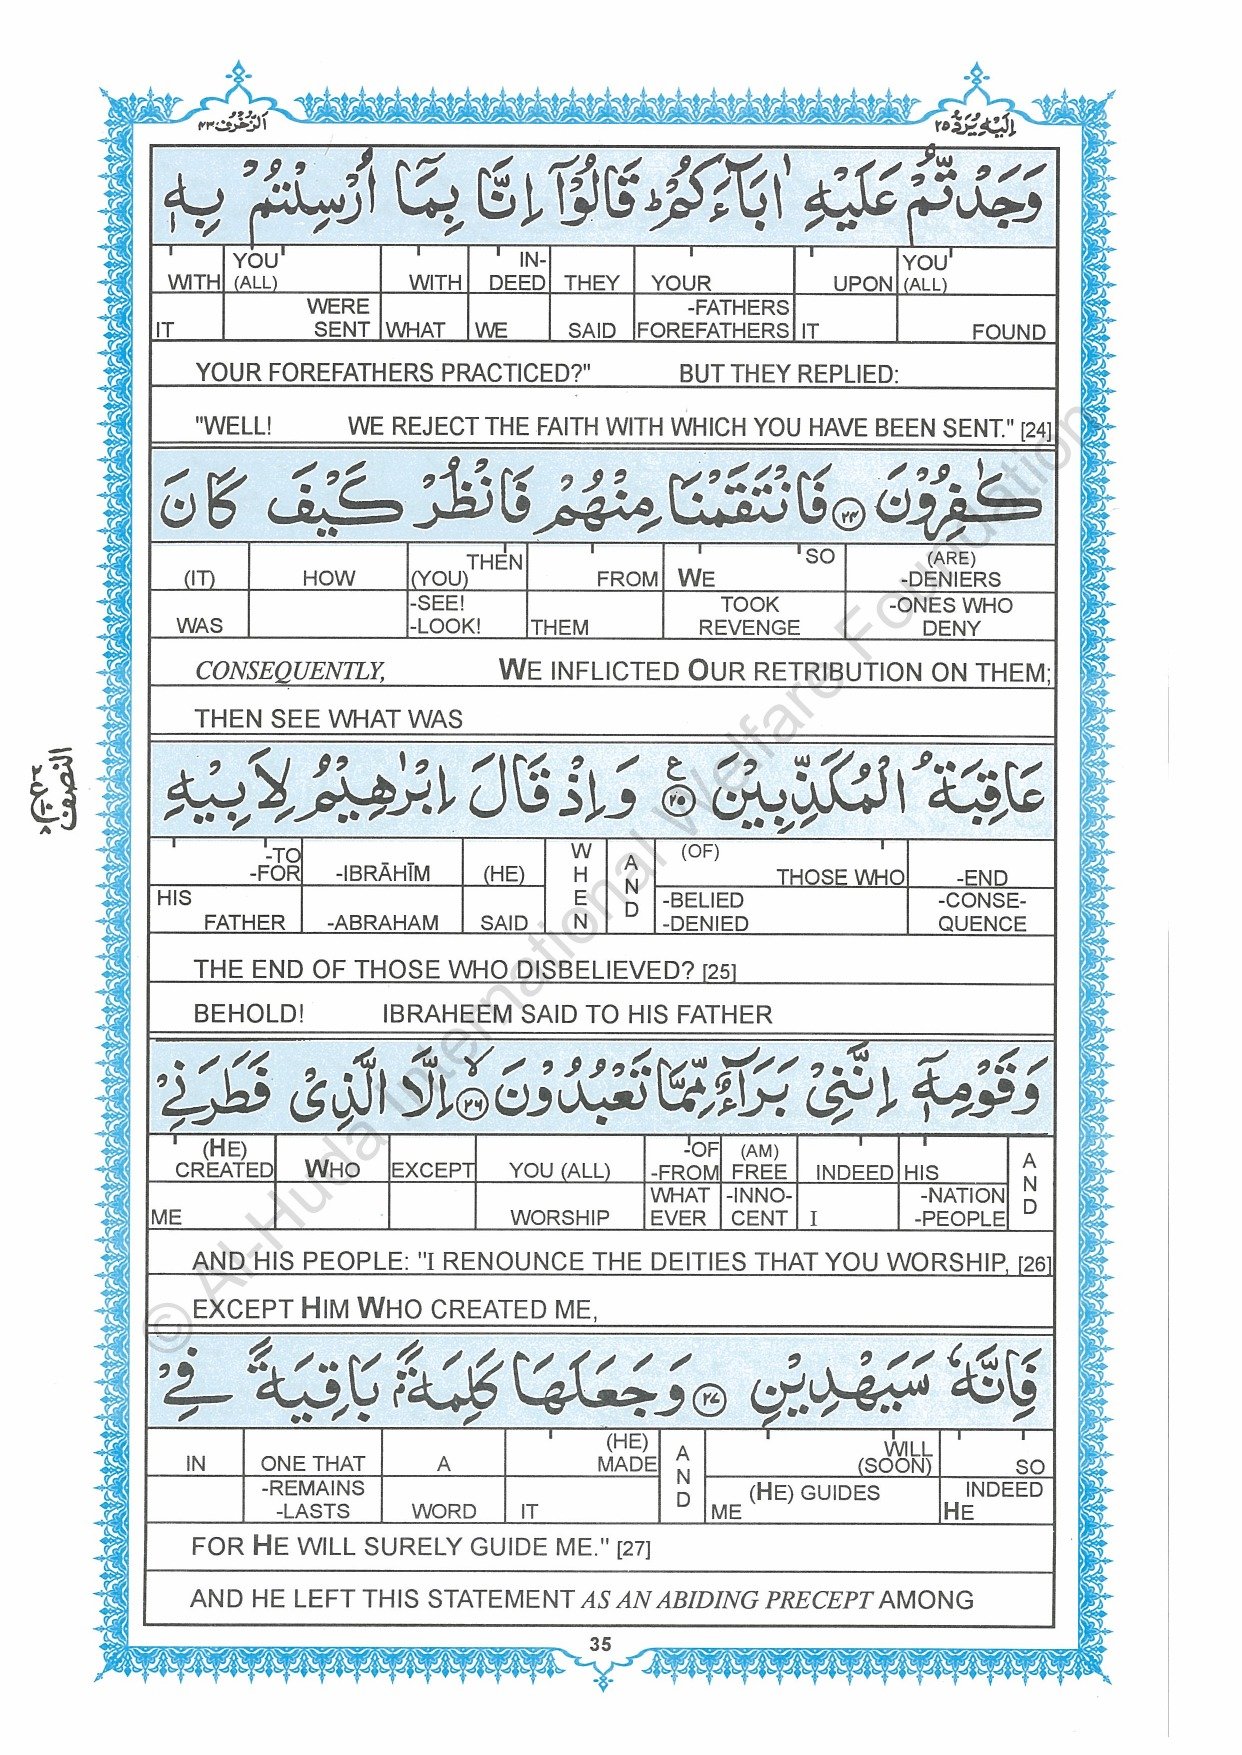 اَلزُّخْرُف ٤٣
اِلَيْهِ يُرَدُّ ٢٥
وَجَدْتُّمْ عَلَيْهِ اٰبَآءَكُمْ ؕ قَالُوْۤا اِنَّا بِمَاۤ اُرْسِلْتُمْ بِهٖ
WITH YOU (ALL) WITH IN-DEED THEY YOUR UPON YOU (ALL)
IT WERE SENT WHAT WE SAID -FATHERS FOREFATHERS IT FOUND
YOUR FOREFATHERS PRACTICED?" BUT THEY REPLIED:
"WELL! WE REJECT THE FAITH WITH WHICH YOU HAVE BEEN SENT." [24]
كٰفِرُوْنَ ﴿۲۴﴾ فَانْتَقَمْنَا مِنْهُمْ فَانْظُرْ كَيْفَ كَانَ
(IT) HOW THEN (YOU) FROM WE SO (ARE) -DENIERS
WAS -SEE! -LOOK! THEM TOOK REVENGE -ONES WHO DENY
CONSEQUENTLY, WE INFLICTED OUR RETRIBUTION ON THEM;
THEN SEE WHAT WAS
عَاقِبَةُ الْمُكَذِّبِيْنَ ﴿۲۵﴾ ع وَاِذْ قَالَ اِبْرٰهِيْمُ لِاَبِيْهِ
النصف
-TO -FOR -IBRĀHĪM (HE) WHEN AND (OF) THOSE WHO -END
HIS FATHER -ABRAHAM SAID -BELIED -DENIED -CONSE-QUENCE
THE END OF THOSE WHO DISBELIEVED? [25]
BEHOLD! IBRAHEEM SAID TO HIS FATHER
وَقَوْمِهٖۤ اِنَّنِيْ بَرَآءٌ مِّمَّا تَعْبُدُوْنَ ﴿۲۶﴾ ۙ اِلَّا الَّذِيْ فَطَرَنِيْ
(HE) CREATED WHO EXCEPT YOU (ALL) -OF -FROM (AM) FREE INDEED HIS AND
ME WORSHIP WHAT EVER -INNO-CENT I -NATION -PEOPLE
AND HIS PEOPLE: "I RENOUNCE THE DEITIES THAT YOU WORSHIP, [26]
EXCEPT HIM WHO CREATED ME,
فَاِنَّهٗ سَيَهْدِيْنِ ﴿۲۷﴾ وَجَعَلَهَا كَلِمَةًۢ بَاقِيَةً فِيْ
IN ONE THAT A (HE) MADE AND WILL (SOON) SO
-REMAINS -LASTS WORD IT (HE) GUIDES ME INDEED HE
FOR HE WILL SURELY GUIDE ME." [27]
AND HE LEFT THIS STATEMENT AS AN ABIDING PRECEPT AMONG
35
© Al-Huda International Welfare Foundation